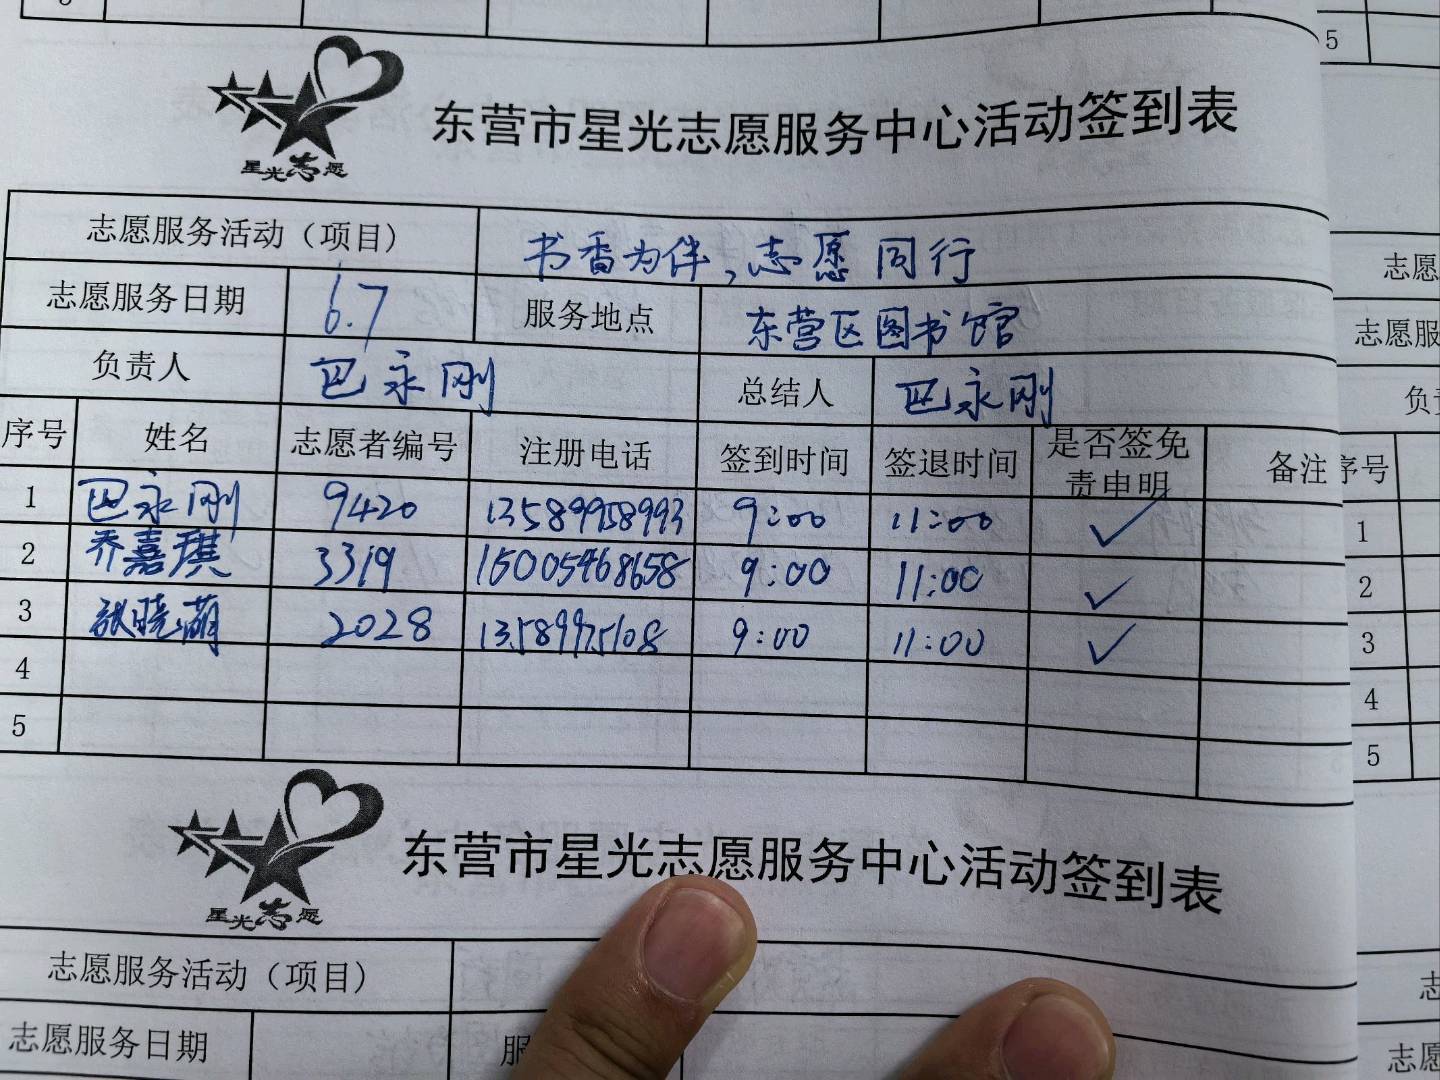 5
5
星光志愿
东营市星光志愿服务中心活动签到表
志愿服务活动（项目） 书香为伴，志愿同行
志愿服务日期 6.7 服务地点 东营区图书馆
负责人 巴永刚 总结人 巴永刚
序号 姓名 志愿者编号 注册电话 签到时间 签退时间 是否签免责申明 备注
1 巴永刚 9420 13589958993 9:00 11:00 ✓
2 乔嘉琪 3319 15005468658 9:00 11:00 ✓
3 张晓萌 2028 13589975108 9:00 11:00 ✓
4
5
志愿
志愿服
负责
序号
1
2
3
4
5
星光志愿
东营市星光志愿服务中心活动签到表
志愿服务活动（项目）
志愿服务日期 服
志
志愿